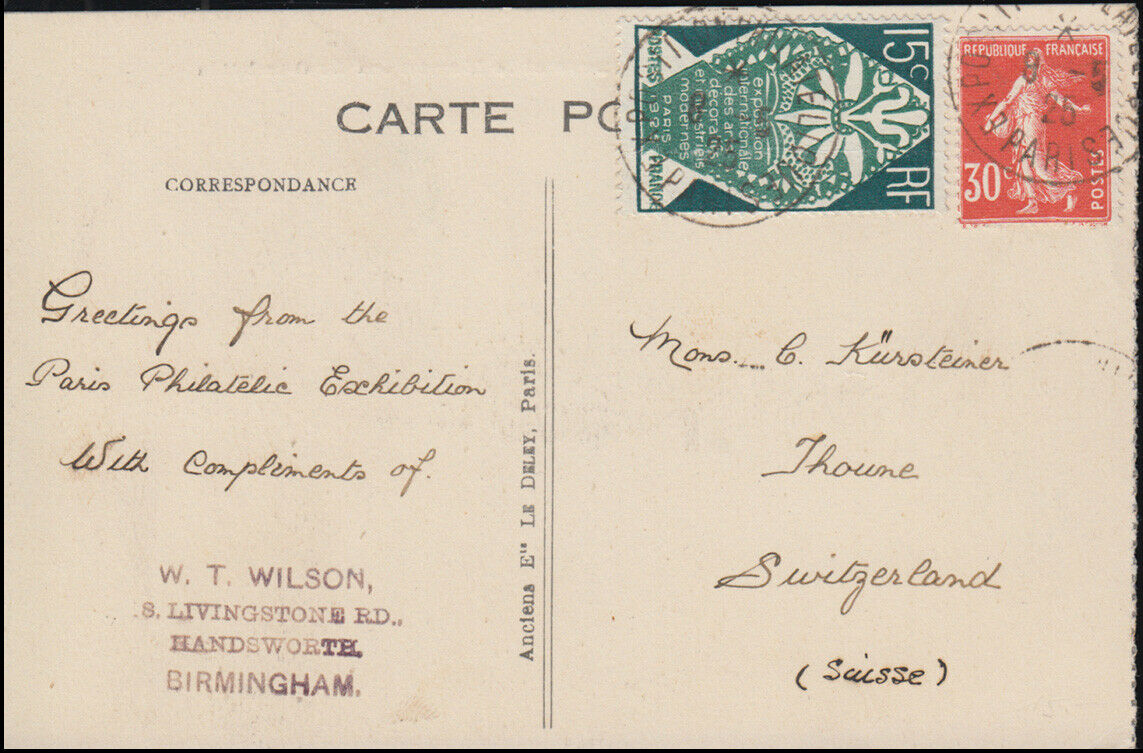 CARTE PO
CORRESPONDANCE
15c
POSTES
FRANCE
exposition
internationale
des arts
décoratifs
et industries
modernes
PARIS
1925
RF
RÉPUBLIQUE FRANÇAISE
30c
POSTES
PARIS
Greetings from the
Paris Philatelic Exhibition
With Compliments of.
W. T. WILSON,
8. LIVINGSTONE RD.,
HANDSWORTH,
BIRMINGHAM.
Anciens Ets LE DELEY, Paris.
Mons. C. Kürsteiner
Thoune
Switzerland
(Suisse)